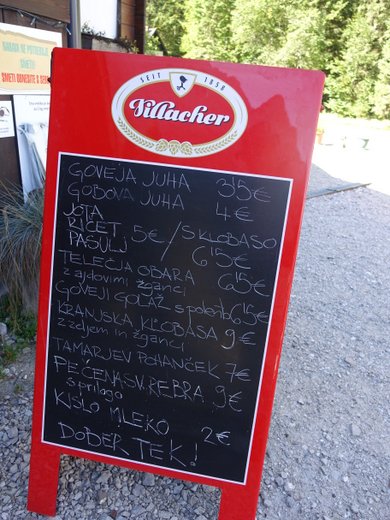 NARAVA NE POTREBUJE
SMETI!
SMETI ODNESITE S SEBOJ
SEIT 1858
Villacher
GOVEJA JUHA 3'5€
GOBOVA JUHA 4€
JOTA
RIČET 5€ / S KLOBASO
PASULJ 6'5€
TELEČJA OBARA 6'5€
z ajdovimi žganci
GOVEJI GOLAŽ s polento 6'5€
KRANJSKA KLOBASA 9€
z zeljem in žganci
TAMARJEV POHANČEK 7€
PEČENA SV. REBRA 9€
s prilogo
KISLO MLEKO 2€
DOBER TEK!